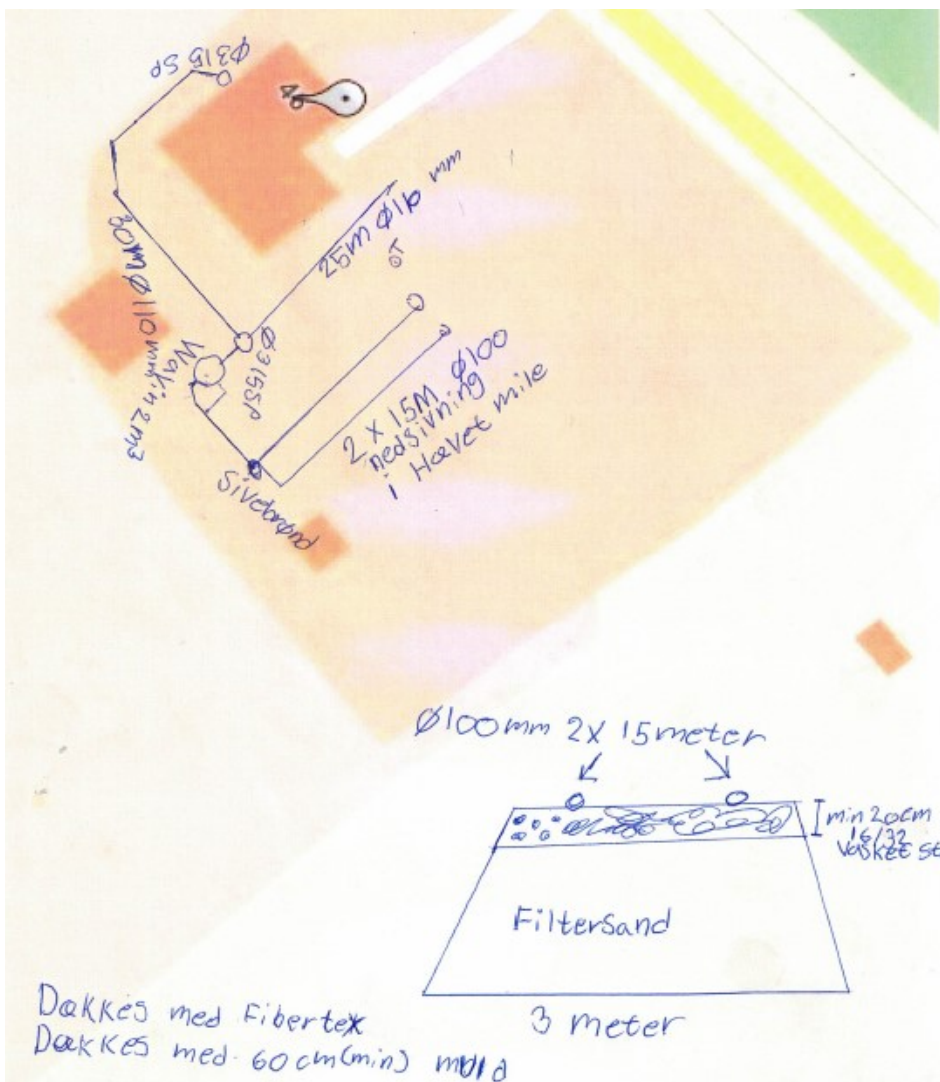 Ø315 SP
46
25M Ø110 mm
30M Ø110 mm
Ø315SP
2m3
2 X 15M Ø100
nedsivning
i Hævet mile
Sivebrønd
Ø100mm 2X 15meter
min 20cm
16/32
Vasket st
FilterSand
3 meter
Dækkes med Fibertex
Dækkes med 60 cm(min) muld